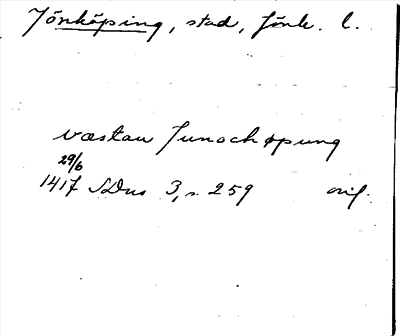 Jönköping, stad, Jönk. l.
væstan Junochøpung
29/6
1417 SDns 3, s. 259 orig.